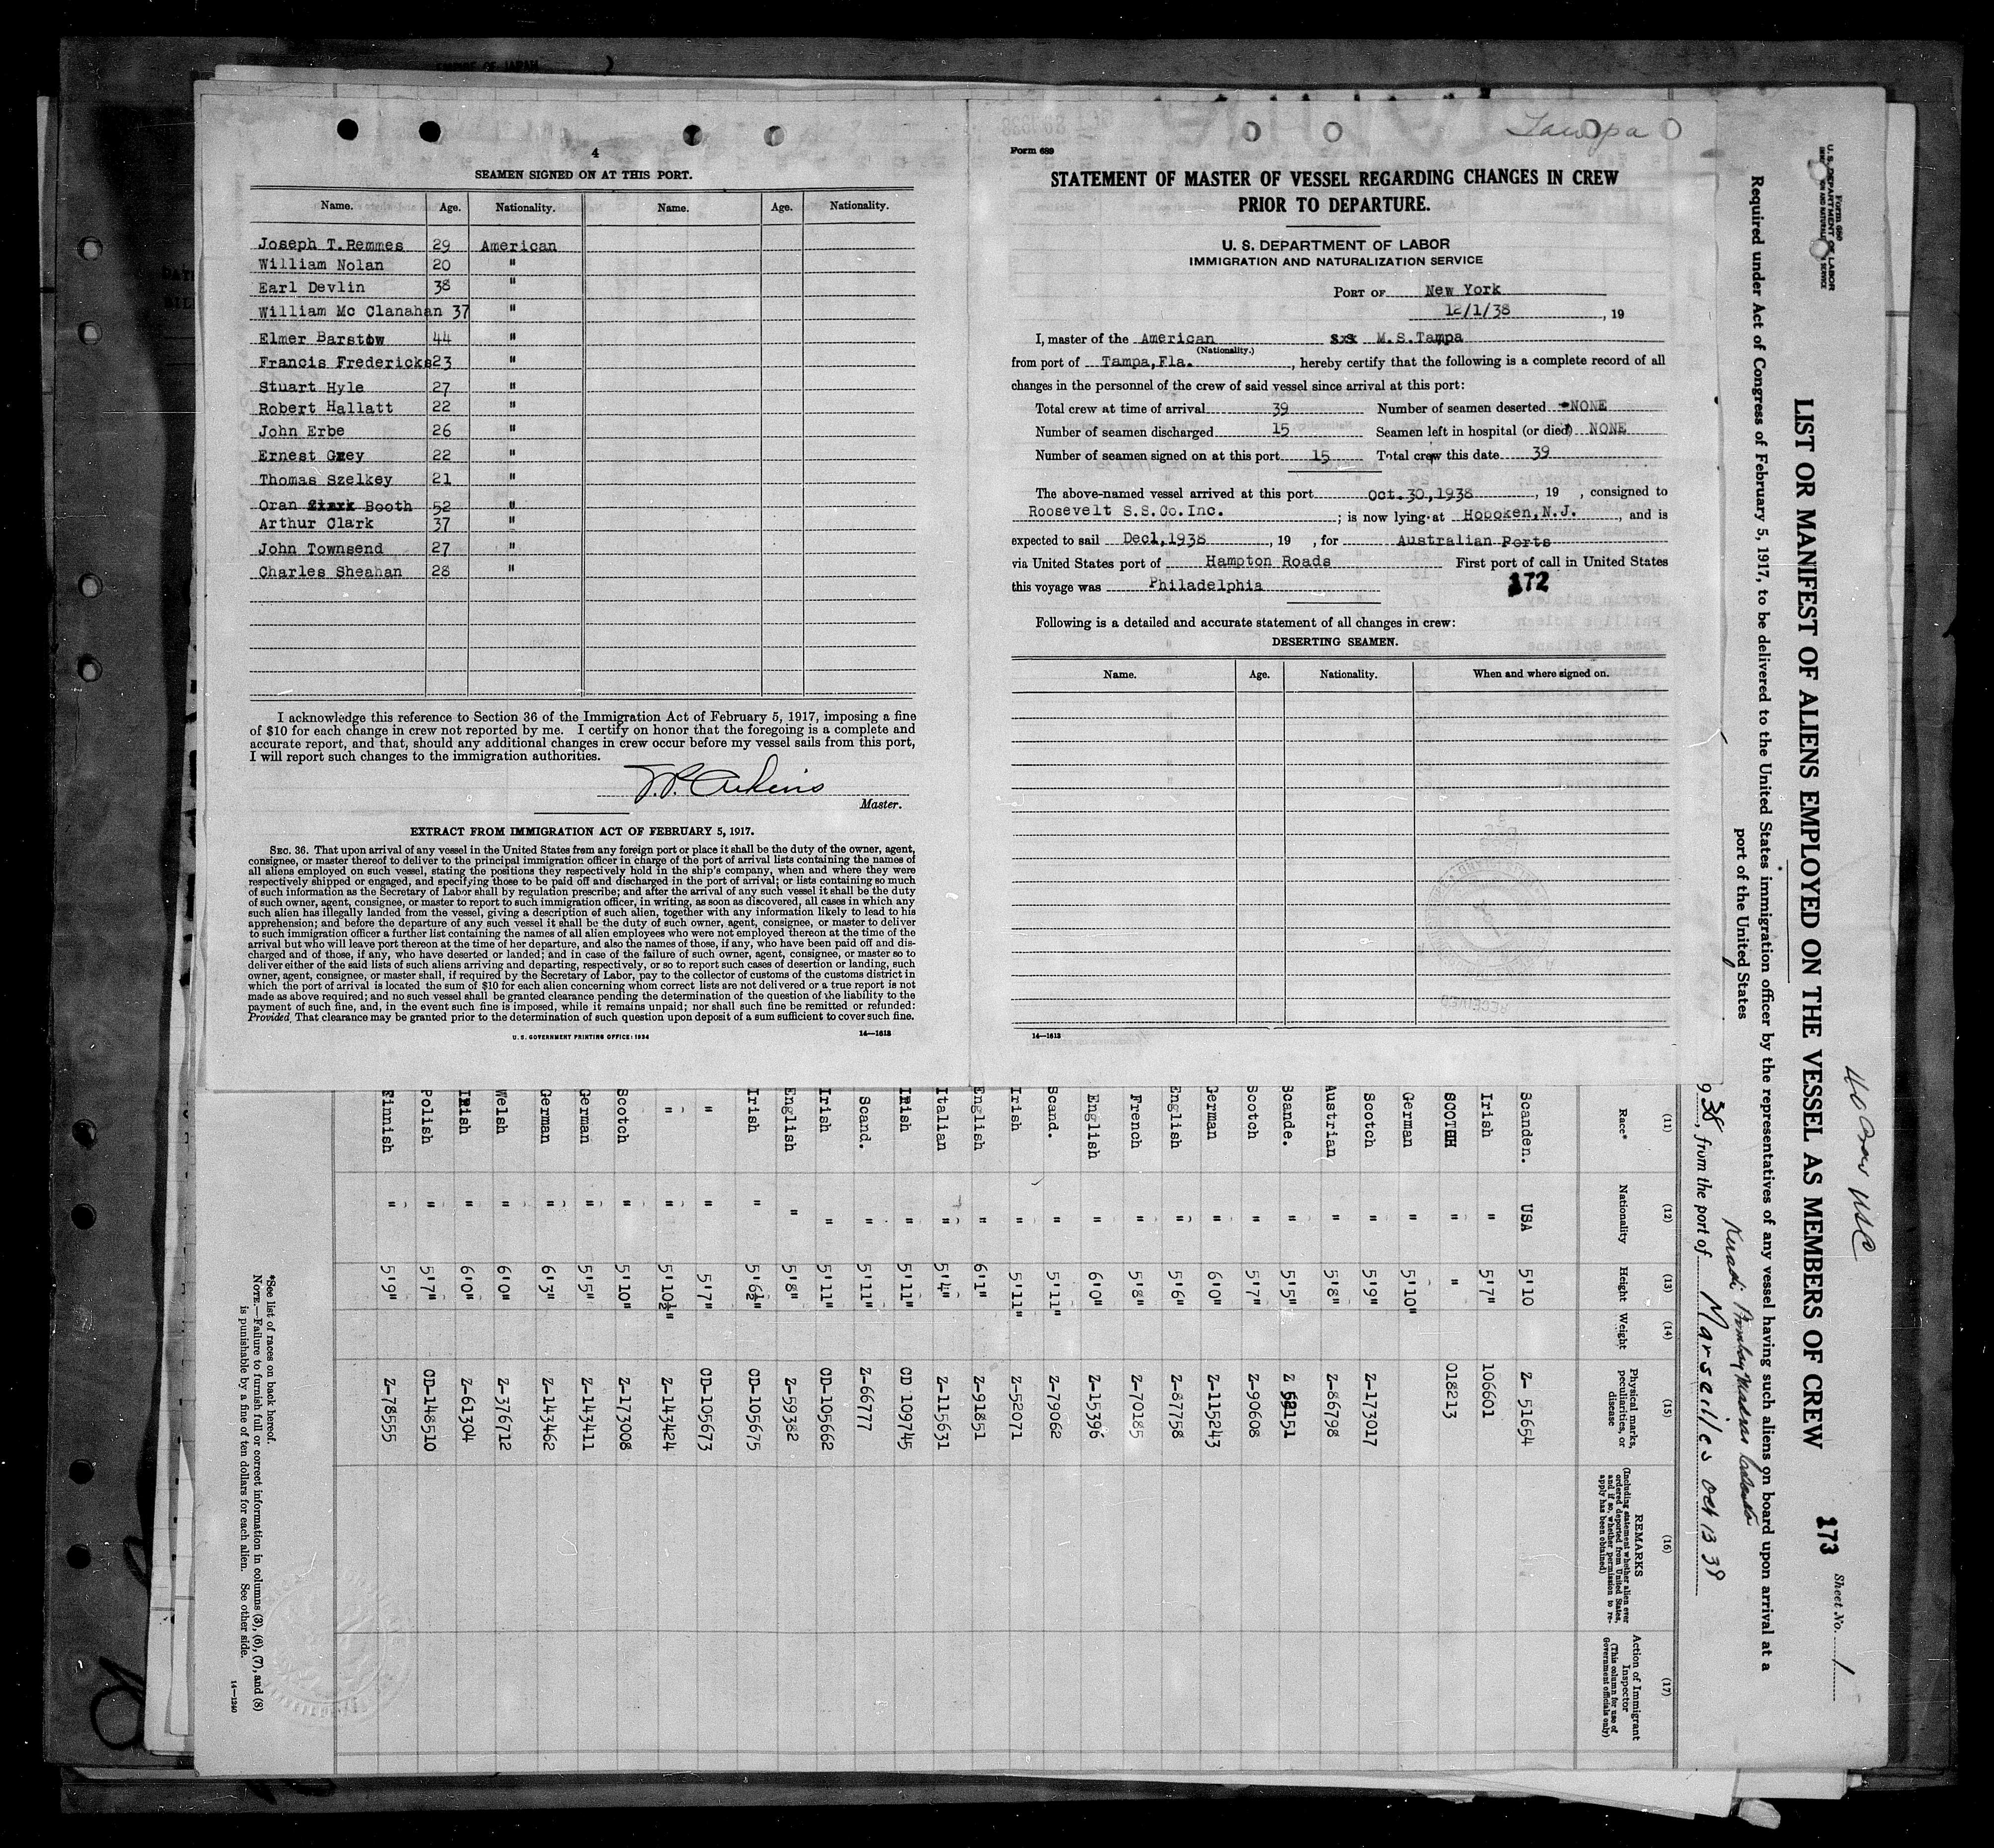 4
SEAMEN SIGNED ON AT THIS PORT.
Name. Age. Nationality. Name. Age. Nationality.
Joseph T. Remmes 29 American
William Nolan 20 "
Earl Devlin 38 "
William Mc Clanahan 37 "
Elmer Barstow 44 "
Francis Fredericks 23 "
Stuart Hyle 27 "
Robert Hallatt 22 "
John Erbe 26 "
Ernest Grey 22 "
Thomas Szelkey 21 "
Oran Booth 52 "
Arthur Clark 37 "
John Townsend 27 "
Charles Sheahan 28 "
I acknowledge this reference to Section 36 of the Immigration Act of February 5, 1917, imposing a fine
of $10 for each change in crew not reported by me. I certify on honor that the foregoing is a complete and
accurate report, and that, should any additional changes in crew occur before my vessel sails from this port,
I will report such changes to the immigration authorities.
Master.
EXTRACT FROM IMMIGRATION ACT OF FEBRUARY 5, 1917.
SEC. 36. That upon arrival of any vessel in the United States from any foreign port or place it shall be the duty of the owner, agent,
consignee, or master thereof to deliver to the principal immigration officer in charge of the port of arrival lists containing the names of
all aliens employed on such vessel, stating the positions they respectively hold in the ship's company, when and where they were
respectively shipped or engaged, and specifying those to be paid off and discharged in the port of arrival; or lists containing so much
of such information as the Secretary of Labor shall by regulation prescribe; and after the arrival of any such vessel it shall be the duty
of such owner, agent, consignee, or master to report to such immigration officer, in writing, as soon as discovered, all cases in which any
such alien has illegally landed from the vessel, giving a description of such alien, together with any information likely to lead to his
apprehension; and before the departure of any such vessel it shall be the duty of such owner, agent, consignee, or master to deliver
to such immigration officer a further list containing the names of all alien employees who were not employed thereon at the time of the
arrival but who will leave port thereon at the time of her departure, and also the names of those, if any, who have been paid off and dis-
charged and of those, if any, who have deserted or landed; and in case of the failure of such owner, agent, consignee, or master so to
deliver either of the said lists of such aliens arriving and departing, respectively, or so to report such cases of desertion or landing, such
owner, agent, consignee, or master shall, if required by the Secretary of Labor, pay to the collector of customs of the customs district in
which the port of arrival is located the sum of $10 for each alien concerning whom correct lists are not delivered or a true report is not
made as above required; and no such vessel shall be granted clearance pending the determination of the question of the liability to the
payment of such fine, and, in the event such fine is imposed, while it remains unpaid; nor shall such fine be remitted or refunded:
Provided, That clearance may be granted prior to the determination of such question upon deposit of a sum sufficient to cover such fine.
U. S. GOVERNMENT PRINTING OFFICE: 1934 14—1613
Tampa
Form 689
STATEMENT OF MASTER OF VESSEL REGARDING CHANGES IN CREW
PRIOR TO DEPARTURE.
U. S. DEPARTMENT OF LABOR
IMMIGRATION AND NATURALIZATION SERVICE
PORT OF New York
12/1/38, 19
I, master of the American M.S. Tampa
(Nationality.)
from port of Tampa, Fla., hereby certify that the following is a complete record of all
changes in the personnel of the crew of said vessel since arrival at this port:
Total crew at time of arrival 39 Number of seamen deserted NONE
Number of seamen discharged 15 Seamen left in hospital (or died) NONE
Number of seamen signed on at this port 15 Total crew this date 39
The above-named vessel arrived at this port Oct. 30, 1938, 19 , consigned to
Roosevelt S.S. Co. Inc.; is now lying at Hoboken, N.J., and is
expected to sail Dec1, 1938, 19 , for Australian Ports
via United States port of Hampton Roads First port of call in United States
this voyage was Philadelphia
172
Following is a detailed and accurate statement of all changes in crew:
DESERTING SEAMEN.
Name. Age. Nationality. When and where signed on.
14—1613
Form 689
U. S. DEPARTMENT OF LABOR
LIST OR MANIFEST OF ALIENS EMPLOYED ON THE VESSEL AS MEMBERS OF CREW
173 Sheet No. 1
Required under Act of Congress of February 5, 1917, to be delivered to the United States immigration officer by the representatives of any vessel having such aliens on board upon arrival at a
port of the United States
938, from the port of Marseilles Oct 13 38
(11) (12) (13) (14) (15) (16) (17)
Race* Nationality Height Weight Physical marks, peculiarities, or disease REMARKS (Including statement whether alien ever ordered deported from United States, and if so, whether permission to re-apply has been obtained) Action of Immigrant Inspector (This column for use of Government officials only)
Scanden. USA 5'10 Z- 51654
Irish " 5'7" 106601
SCOTCH " " 018213
German " 5'10"
Scotch " 5'9" Z-173017
Austrian " 5'8" Z-86798
Scande. " 5'5" Z 151
Scotch " 5'7" Z-90608
German " 6'0" Z-115243
English " 5'6" Z-87758
French " 5'8" Z-70185
English " 6'0" Z-15396
Scand. " 5'11" Z-79062
Irish " 5'11" Z-52071
English " 6'1" Z-91851
Italian " 5'4" Z-115631
Irish " 5'11" CD 109745
Scand. " 5'11" Z-66777
Irish " 5'11" CD-105662
English " 5'8" Z-59382
Irish " 5'6½" CD-105675
" " 5'7" CD-105673
" " 5'10½" Z-143424
Scotch " 5'10" Z-173008
German " 5'5" Z-143411
German " 6'3" Z-143462
Welsh " 6'0" Z-376712
Irish " 6'0" Z-61304
Polish " 5'7" CD-148510
Finnish " 5'9" Z-78555
*See list of races on back hereof.
NOTE.—Failure to furnish full or correct information in columns (3), (6), (7), and (8)
is punishable by a fine of ten dollars for each alien. See other side.
14—1240